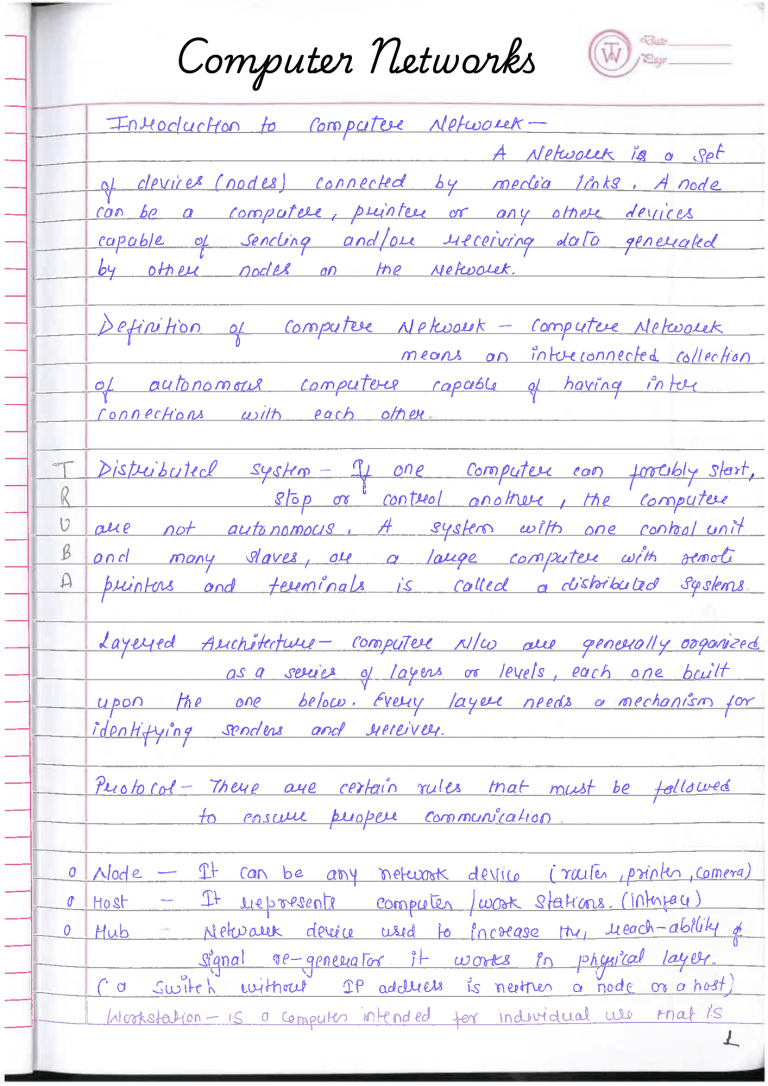 Computer Networks
Date
Page
TW
Introduction to Computer Network —
A Network is a set
of devices (nodes) connected by media links. A node
can be a computer, printer or any other devices
capable of sending and/or receiving data generated
by other nodes on the Network.
Definition of Computer Network — Computer Network
means an interconnected collection
of autonomous computers capable of having inter
connections with each other.
Distributed system — If one computer can forcibly start,
stop or control another, the computers
are not autonomous. A system with one control unit
and many slaves, or a large computer with remote
printers and terminals is called a distributed systems.
TRUBA
Layeyed Architecture — computer N/W are generally organized
as a series of layers or levels, each one built
upon the one below. Every layer needs a mechanism for
identifying senders and receiver.
Protocol — There are certain rules that must be followed
to ensure proper communication.
o Node — It can be any network device (router, printer, camera)
o Host — It represents computer / work stations.
o Hub — Network device used to increase the, reach-ability of
signal re-generator it works in physical layer.
(a switch without IP address is neither a node or a host)
Workstation — is a computer intended for individual use that is
1